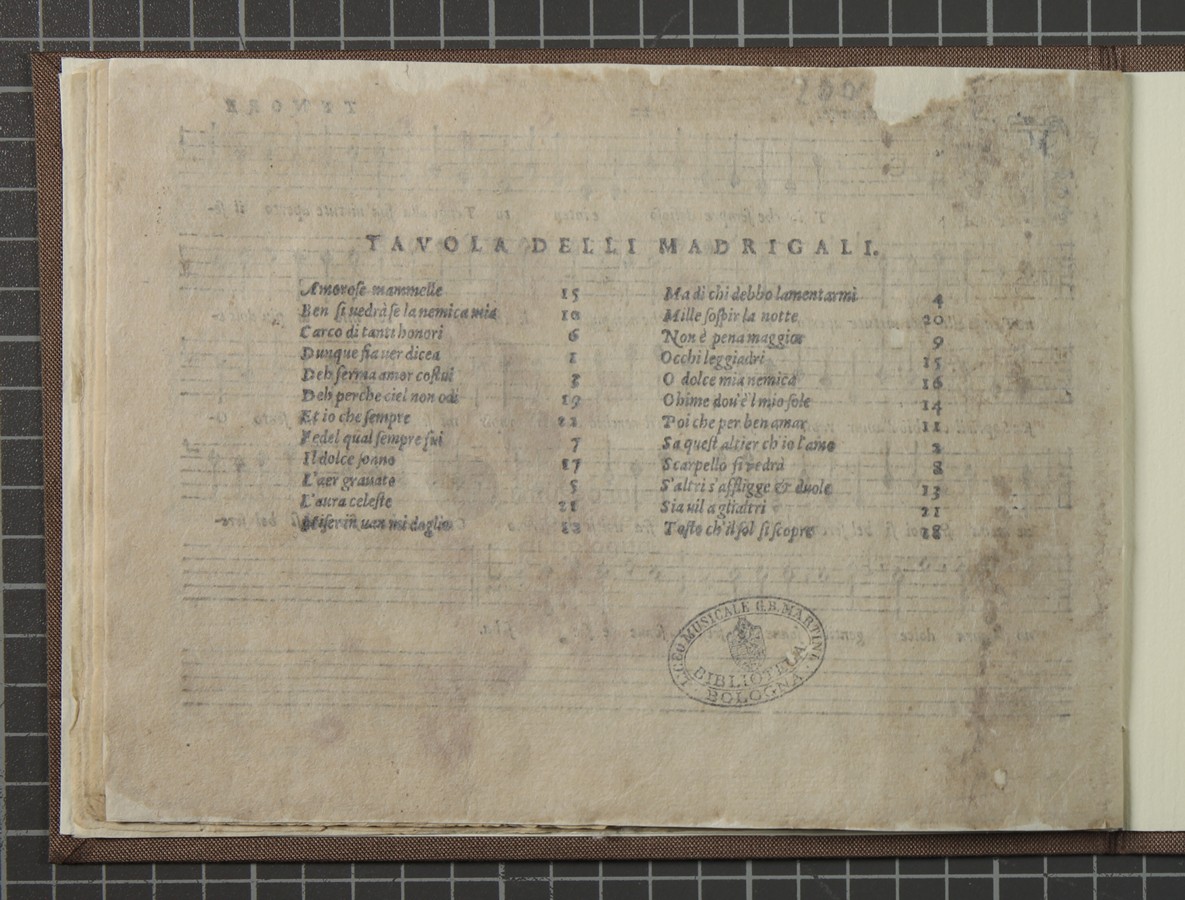 TAVOLA DELLI MADRIGALI.
Amorose mammelle 15
Ben si vedrà se la nemica mia 10
Carco di tanti honori 6
Dunque fia ver dicea 1
Deh ferma amor costui
Deh perche ciel non odi 19
Et io che sempre 22
Fedel qual sempre fui 7
Il dolce sonno 17
L'aer gravato 5
L'aura celeste 21
Miser in van mi doglio
Ma di chi debbo lamentarmi 4
Mille sospir la notte 20
Non è pena maggior 9
Occhi leggiadri 15
O dolce mia nemica 16
Ohime dov'è'l mio sole 14
Poi che per ben amar 11
Sa quest'altier ch'io l'amo 2
Scarpello si vedrà 8
S'altri s'affligge & duole 13
Sia vil a gli altri 21
Tosto ch'il sol si scopre 18
LICEO MUSICALE G.B. MARTINI
BIBLIOTECA
BOLOGNA